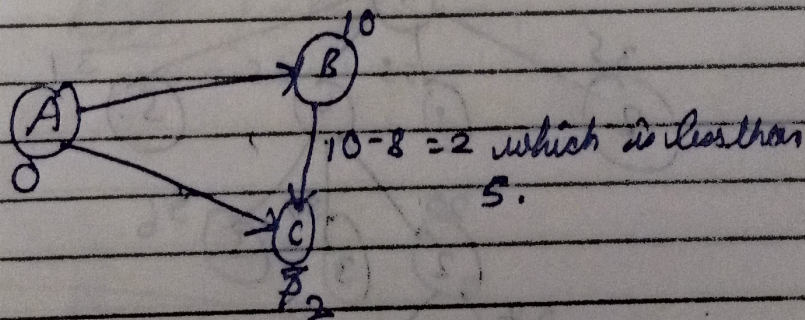 10
B
A
0
10-8 = 2 which is less than
5.
C
5 2